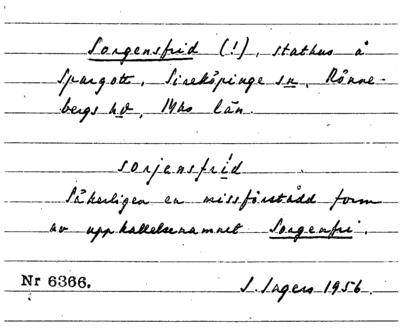 Sorgensfrid (!), stathus å
Spargott, Sireköpinge sn, Rönne-
bergs hd, Mhs län.
sorjensfrid
Säkerligen en missförstådd form
av uppkallelsenamnet Sorgenfri.
Nr 6366.
S. Ingers 1956.